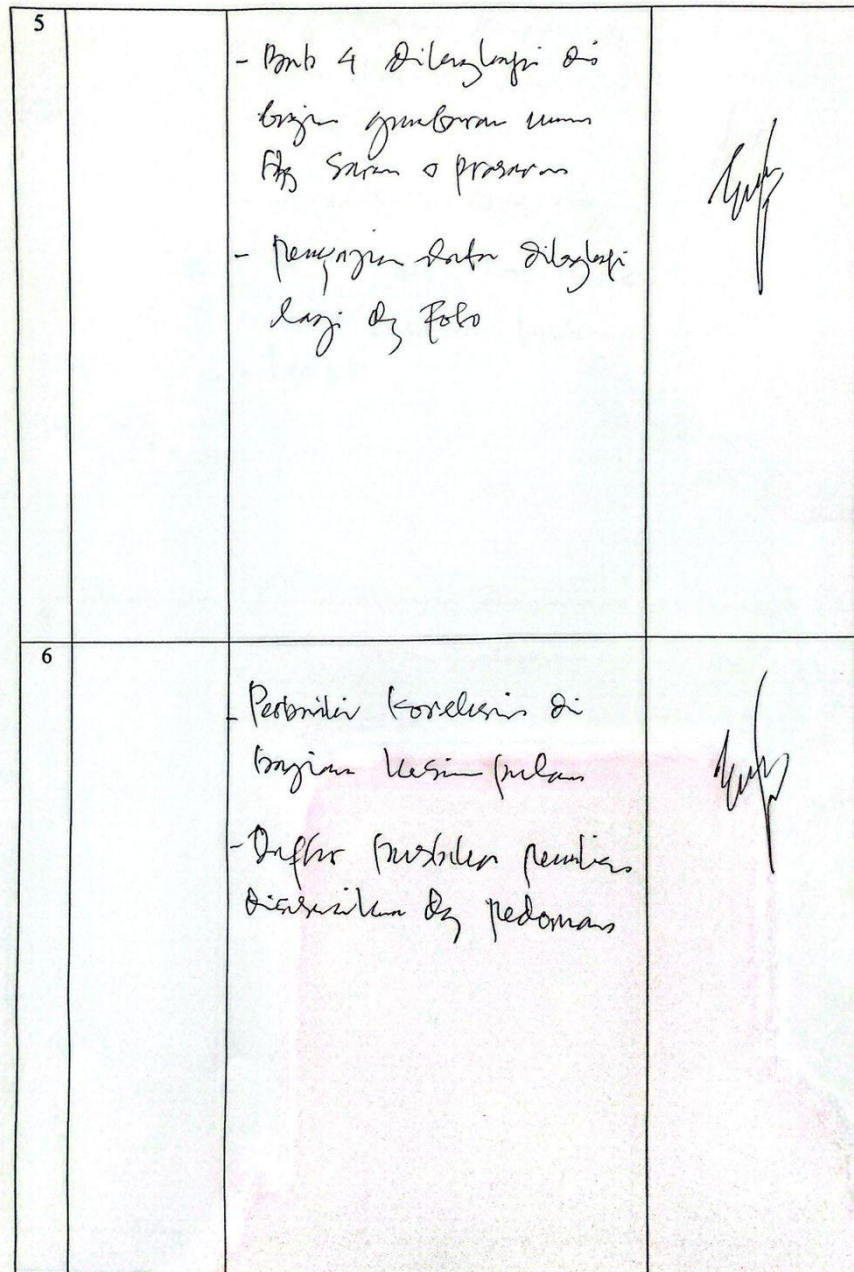 5
- Bab 4 dilengkapi di
bagian gambaran umum
ttg sarana & prasarana
- penyajian data dilengkapi
lagi dg Foto
6
- Perbaiki koreksian di
bagian kesimpulan
- Daftar pustaka penulisan
disesuaikan dg pedoman